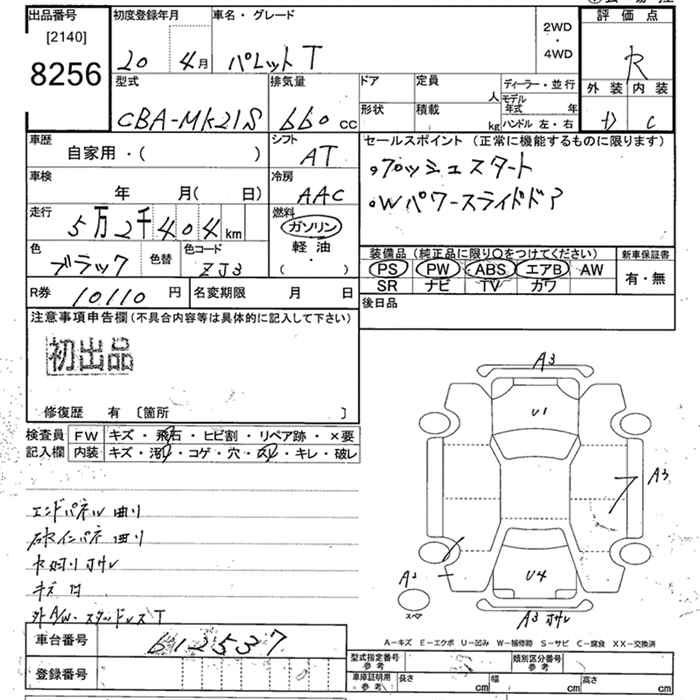 出品番号 初度登録年月 車名・グレード 2WD・4WD 評価点
[2140]
8256 20 4月 パレット T R
型式 排気量 ドア 定員 人 ディーラー・並行 外装 内装
CBA-MK21S 660cc 形状 積載 kg モデル年式 年 ハンドル 左・右 D C
車歴 自家用・( ) シフト AT セールスポイント (正常に機能するものに限ります)
車検 年 月(日) 冷房 AAC ・プッシュスタート
走行 5万2千404km 燃料 ガソリン 軽油 ・( ) ・Wパワースライドドア
色 ブラック 色替 色コード ZJ3 装備品 (純正品に限り○をつけてください) 新車保証書
PS PW ABS エアB AW 有・無
SR ナビ TV カワ
R券 10110円 名変期限 月 日 後日品
注意事項申告欄 (不具合内容等は具体的に記入して下さい)
初出品
修復歴 有 〔箇所 〕
検査員 FW キズ・飛石・ヒビ割・リペア跡・×要
記入欄 内装 キズ・汚れ・コゲ・穴・スレ・キレ・破レ
A3
U1
A3
U4
A2
スペア
A3 オサレ
エンドパネル 曲り
キズ
外A/W・スタッドレスT
車台番号 612537
登録番号
A-キズ E-エクボ U-凹み W-補修跡 S-サビ C-腐食 XX-交換済
型式指定番号 参考 類別区分番号 参考
車庫証明用 参考 長さ cm 幅 cm 高さ cm